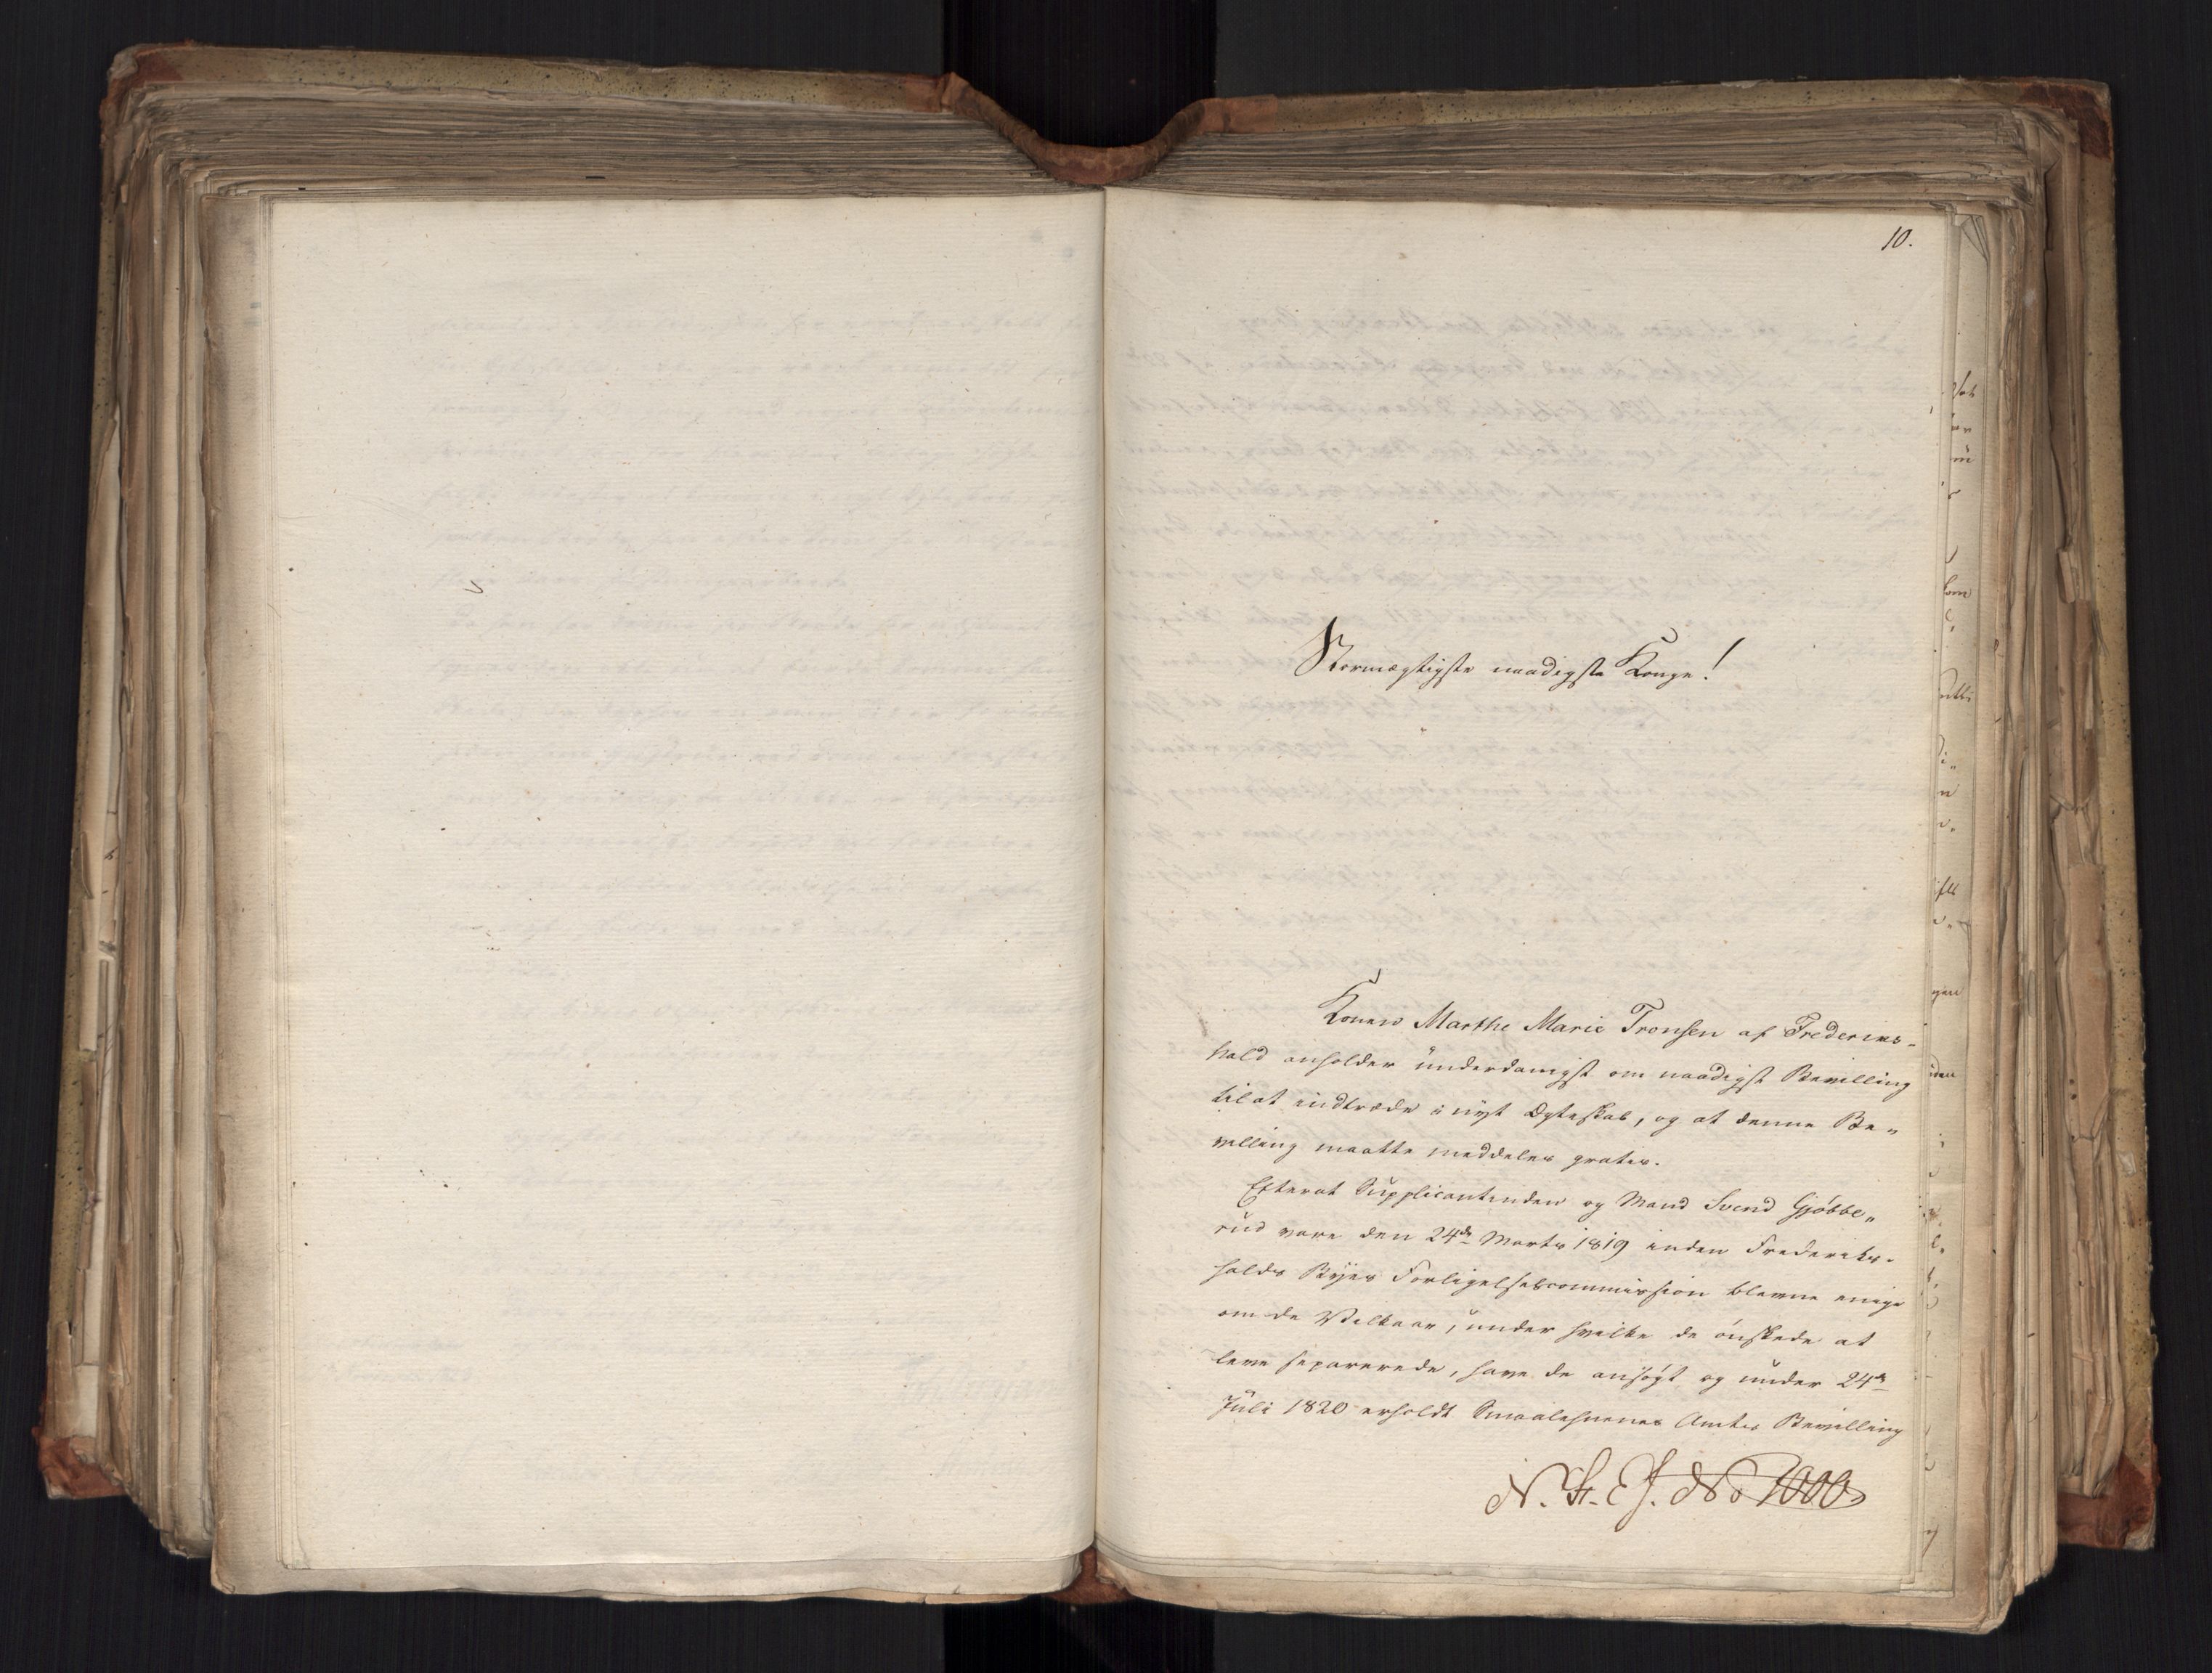 10.
Stormægtigste naadigste Konge!
Konen Marthe Marie Tronsen af Frederiks-
hald anholder underdanigst om naadigst Bevilling
til at indtræde i nyt Ægteskab, og at denne Be„
villing maatte meddeles gratis.
Efterat Supplicantinden og Mand Svend Gjøbbe„
rud vare den 24de Marts 1819 inden Frederiks-
halds Byes Forligelsescommission blevne enige
om de Vilkaar, under hvilke de ønskede at
leve separerede, have de ansøgt og under 24de
Juli 1820 erholdt Smaalehnenes Amtes Bevilling